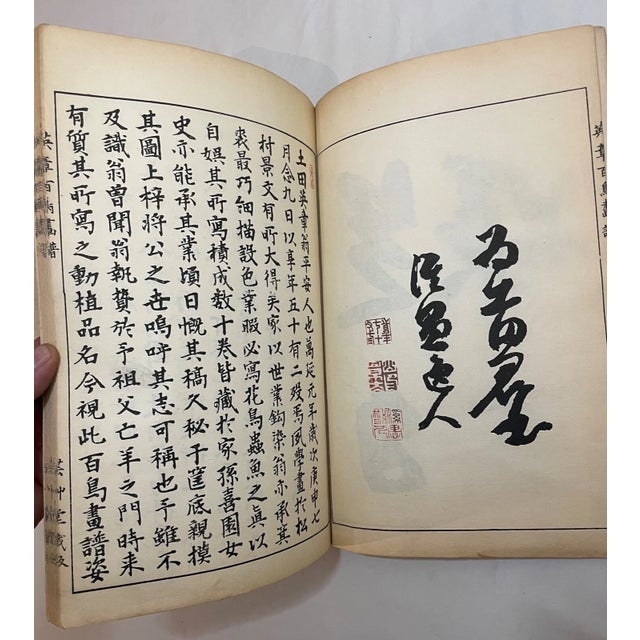 英章百鳥畫譜
土田英章翁平安人也萬延元年歲次庚申七
月念九日以享年五十有二歿焉夙學畫於松
村景文有所大得矣家以世業鈎染翁亦承箕
裘最巧細描設色業暇必寫花鳥蟲魚之眞以
自娯其所寫積成數十卷皆藏於家孫喜園女
史亦能承其業頃日慨其稿久秘于筐底親摸
其圖上梓將公之世嗚呼其志可稱也予雖不
及識翁曾聞翁執贄於予祖父亡羊之門時来
有質其所寫之動植品名今視此百鳥畫譜姿
英章百鳥畫譜
芸艸堂藏版